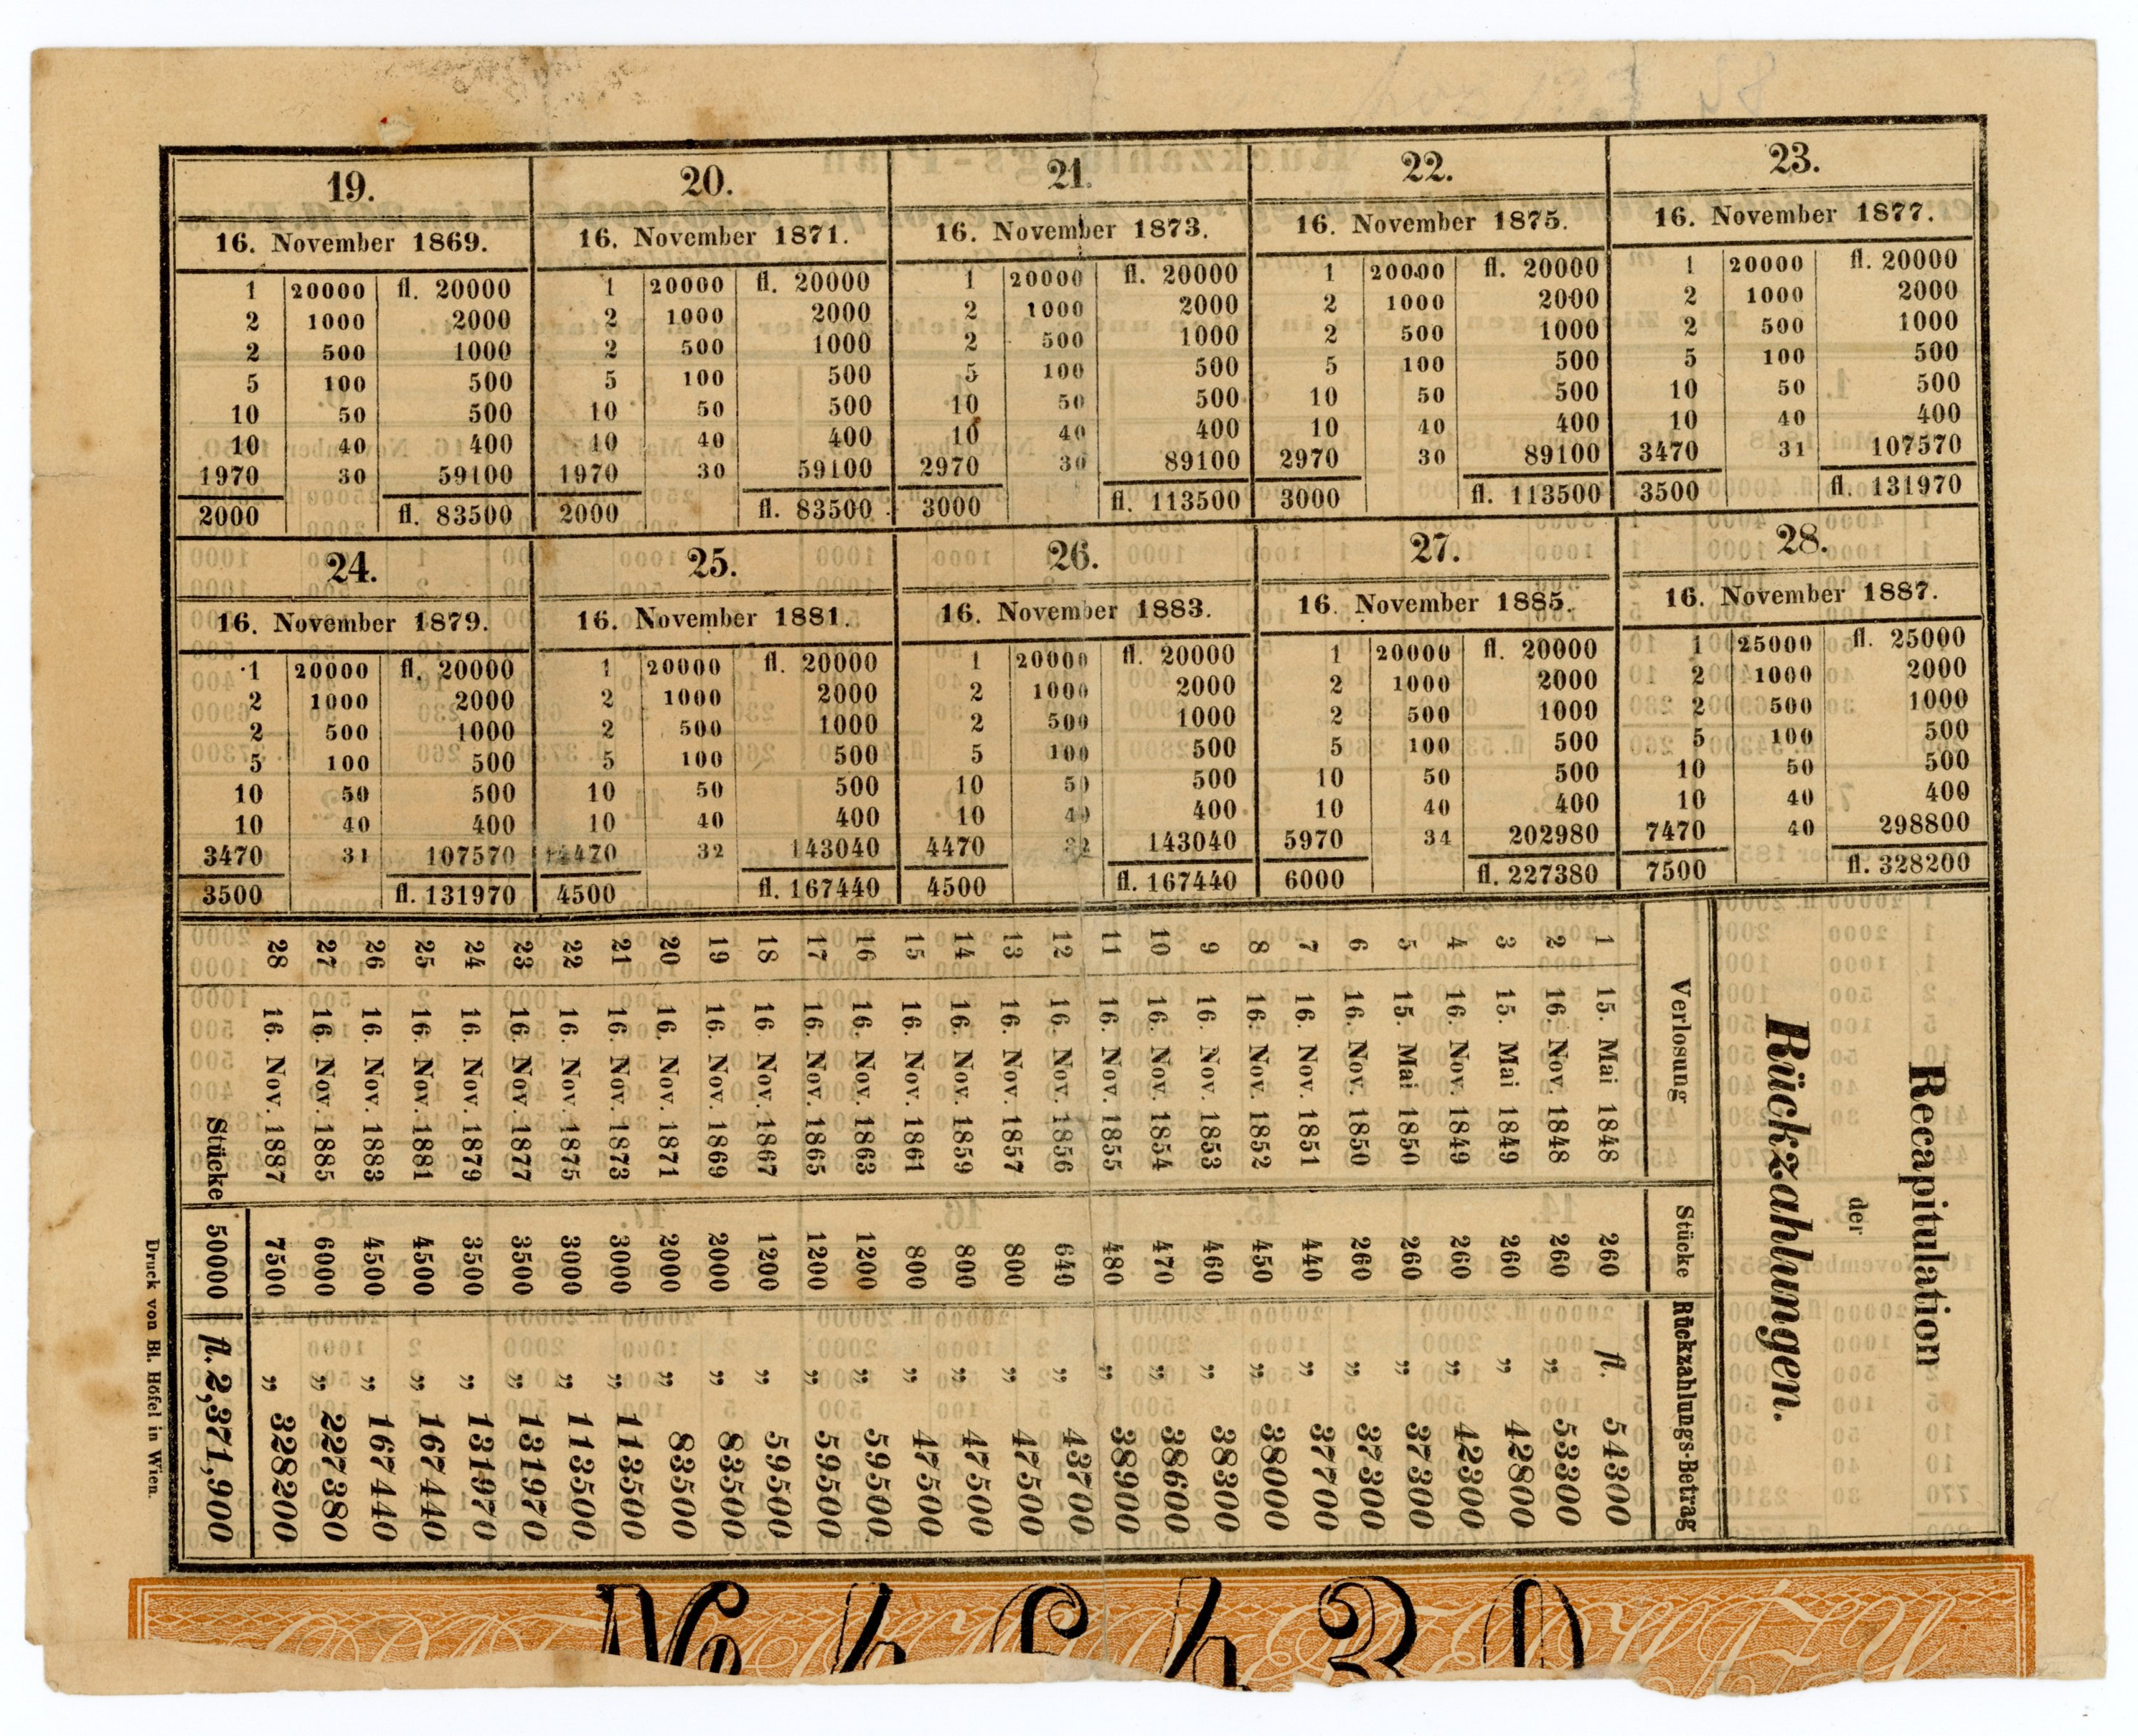 19.
16. November 1869.
1 20000 fl. 20000
2 1000 2000
2 500 1000
5 100 500
10 50 500
10 40 400
1970 30 59100
2000 fl. 83500
20.
16. November 1871.
1 20000 fl. 20000
2 1000 2000
2 500 1000
5 100 500
10 50 500
10 40 400
1970 30 59100
2000 fl. 83500
21.
16. November 1873.
1 20000 fl. 20000
2 1000 2000
2 500 1000
5 100 500
10 50 500
10 40 400
2970 30 89100
3000 fl. 113500
22.
16. November 1875.
1 20000 fl. 20000
2 1000 2000
2 500 1000
5 100 500
10 50 500
10 40 400
2970 30 89100
3000 fl. 113500
23.
16. November 1877.
1 20000 fl. 20000
2 1000 2000
2 500 1000
5 100 500
10 50 500
10 40 400
3470 31 107570
3500 fl. 131970
24.
16. November 1879.
1 20000 fl. 20000
2 1000 2000
2 500 1000
5 100 500
10 50 500
10 40 400
3470 31 107570
3500 fl. 131970
25.
16. November 1881.
1 20000 fl. 20000
2 1000 2000
2 500 1000
5 100 500
10 50 500
10 40 400
4470 32 143040
4500 fl. 167440
26.
16. November 1883.
1 20000 fl. 20000
2 1000 2000
2 500 1000
5 100 500
10 50 500
10 40 400
4470 32 143040
4500 fl. 167440
27.
16. November 1885.
1 20000 fl. 20000
2 1000 2000
2 500 1000
5 100 500
10 50 500
10 40 400
5970 34 202980
6000 fl. 227380
28.
16. November 1887.
1 25000 fl. 25000
2 1000 2000
2 500 1000
5 100 500
10 50 500
10 40 400
7470 40 298800
7500 fl. 328200
Recapitulation
der
Rückzahlungen.
Verlosung Stücke Rückzahlungs-Betrag
1 15. Mai 1848 260 fl. 54300
2 16. Nov. 1848 260 „ 53300
3 15. Mai 1849 260 „ 42800
4 16. Nov. 1849 260 „ 42300
5 15. Mai 1850 260 „ 37300
6 16. Nov. 1850 260 „ 37300
7 16. Nov. 1851 440 „ 37700
8 16. Nov. 1852 450 „ 38000
9 16. Nov. 1853 460 „ 38300
10 16. Nov. 1854 470 „ 38600
11 16. Nov. 1855 480 „ 38900
12 16. Nov. 1856 640 „ 43700
13 16. Nov. 1857 800 „ 47500
14 16. Nov. 1859 800 „ 47500
15 16. Nov. 1861 800 „ 47500
16 16. Nov. 1863 1200 „ 59500
17 16. Nov. 1865 1200 „ 59500
18 16. Nov. 1867 1200 „ 59500
19 16. Nov. 1869 2000 „ 83500
20 16. Nov. 1871 2000 „ 83500
21 16. Nov. 1873 3000 „ 113500
22 16. Nov. 1875 3000 „ 113500
23 16. Nov. 1877 3500 „ 131970
24 16. Nov. 1879 3500 „ 131970
25 16. Nov. 1881 4500 „ 167440
26 16. Nov. 1883 4500 „ 167440
27 16. Nov. 1885 6000 „ 227380
28 16. Nov. 1887 7500 „ 328200
Stücke 50000 fl. 2,371,900
Druck von Bl. Höfel in Wien.